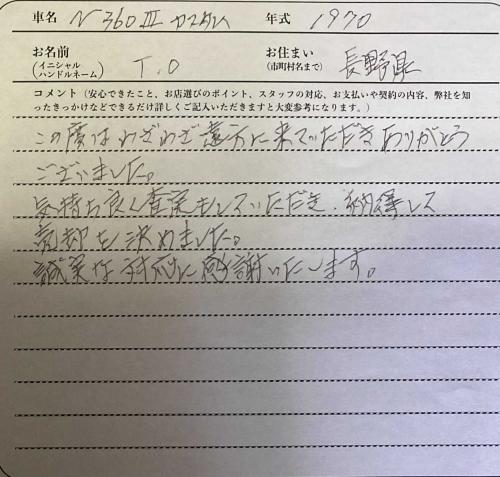 車名 N360Ⅲ カスタム 年式 1970
お名前 (イニシャル ハンドルネーム) T.O お住まい (市町村名まで) 長野県
コメント（安心できたこと、お店選びのポイント、スタッフの対応、お支払いや契約の内容、弊社を知
ったきっかけなどできるだけ詳しくご記入いただきますと大変参考になります。）
この度はわざわざ遠方に来ていただきありがとう
ございました。
気持ち良く査定もしていただき、納得して
売却を決めました。
誠実な対応に感謝いたします。